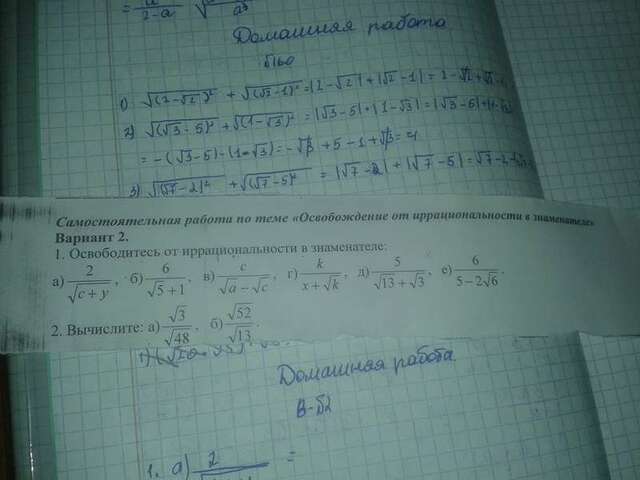 2-a
Домашняя работа
1) √(2-√2)² + √(√2-1)² = |2-√2| + |√2-1| = 2-√2+
2) √(√3-5)² + √(1-√3)² = |√3-5| + |1-√3| = |√3-5| +
= -(√3-5) - (1-√3) = -√3 + 5 - 1 + √3 = 4
3) √(√7-2)² + √(√7-5)² = |√7-2| + |√7-5| = √7-2
Самостоятельная работа по теме «Освобождение от иррациональности в знаменателе»
Вариант 2.
1. Освободитесь от иррациональности в знаменателе:
а) 2/√(c+y), б) 6/(√5+1), в) c/(√a-√c), г) k/(x+√k), д) 5/(√13+√3), е) 6/(5-2√6).
2. Вычислите: а) √3/√48, б) √52/√13.
Домашняя работа
В-2
1. а) 2 =